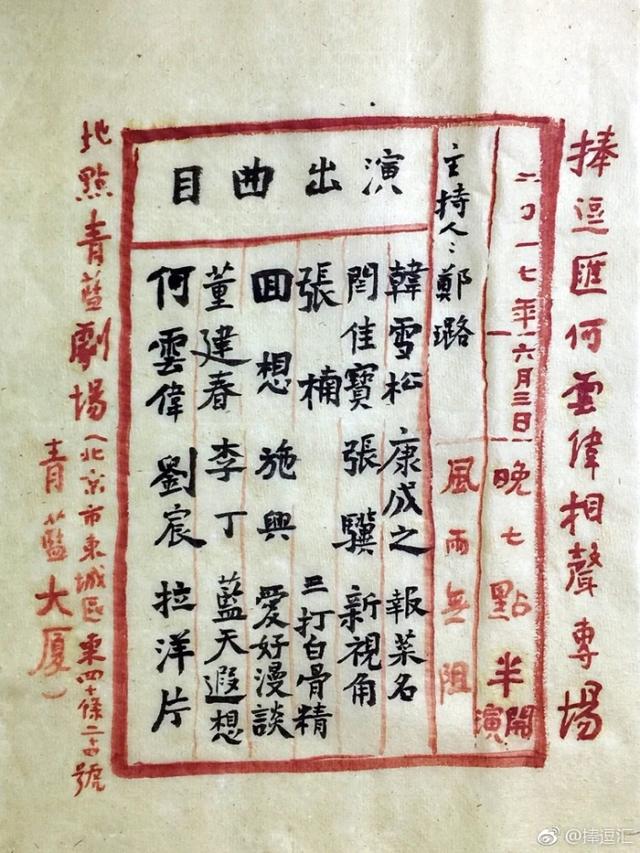 捧逗匯何雲偉相聲專場
二〇一七年(六月三日)晚七點半開演
主持人:鄭璐 風雨無阻
演出曲目
韓雪松 康成之 報菜名
閆佳寶 張驥 新視角
張楠 三打白骨精
回想 施興 愛好漫談
董建春 李丁 藍天遐想
何雲偉 劉宸 拉洋片
地點青藍劇場(北京市東城區東四十條二十四號
青藍大厦)
@捧逗汇